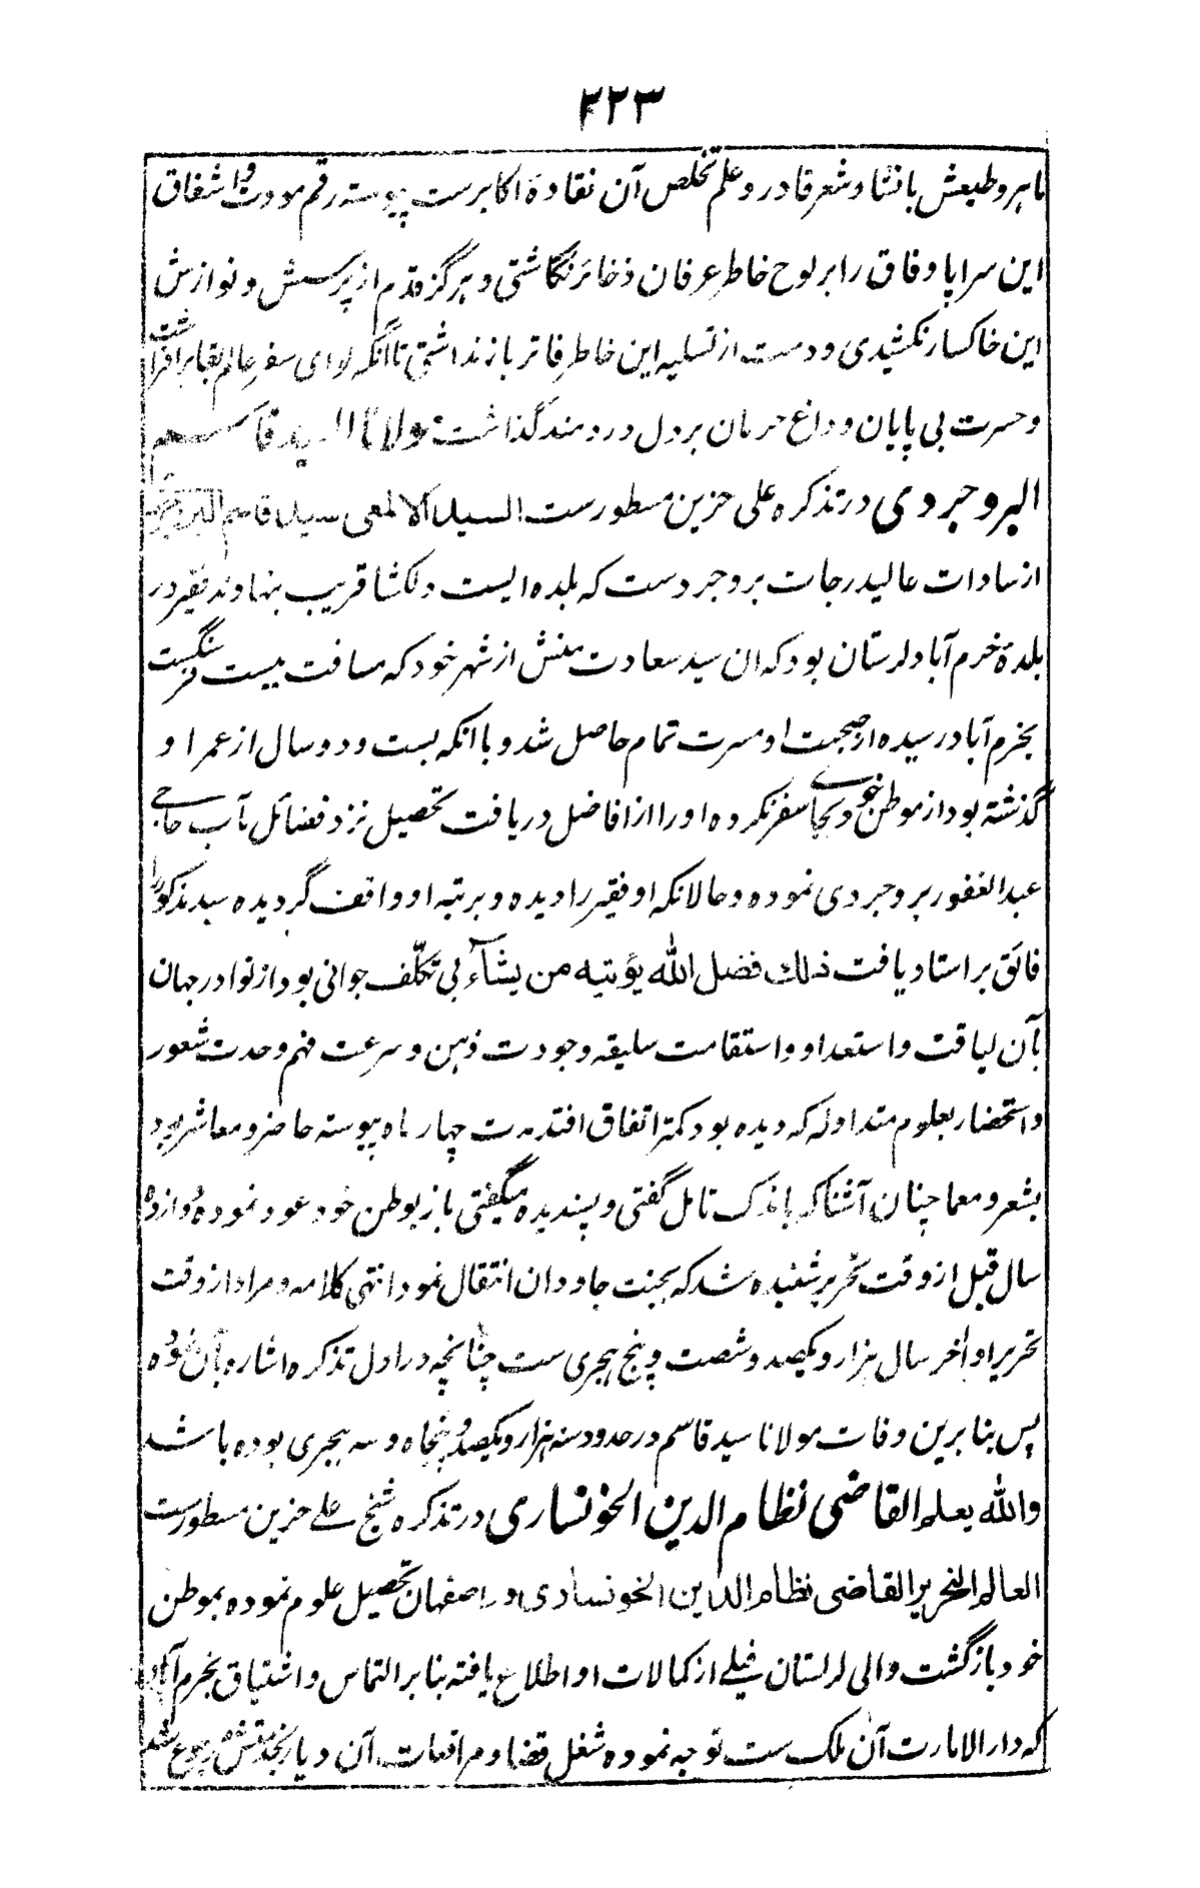 ۲۲۳
ماہر و طبعش بانشا و شعر قادر و علم تخلص آن نقادۂ اکابرست پیوستہ رقم مودت و اشفاق
این سراپا وفاق را بر لوح خاطر عرفان ذخائر نگاشتی و ہرگز قدم از پرسش و نوازش
این خاکسار نکشیدی و دست از تسلیہ این خاطر فاتر باز نداشتی تا آنکہ لوای سفر عالم بقا برافراشت
و حسرت بی پایان و داغ حرمان بر دل دردمند گذاشت مولانا السید قاسم
البروجردی در تذکرہ علی حزین مسطورست السید الالمعی سید قاسم البروجردی
از سادات عالیدرجات بروجردست کہ بلدہ ایست دلکشا قریب نہاوند فقیر در
بلدۂ خرم آباد لرستان بود کہ ان سید سعادت منش از شہر خود کہ مسافت بیست فرسنگست
بخرم آباد رسیدہ از صحبت او مسرت تمام حاصل شد و با انکہ بست و دو سال از عمر او
گذشتہ بود از موطن خود بجای سفر نکردہ او را از افاضل دریافت تحصیل نزد فضائل مآب حاجی
عبد الغفور بروجردی نمودہ و حالانکہ او فقیر را دیدہ و برتبہ او واقف گردیدہ سید مذکور را
فائق بر استاد یافت ذلك فضل الله يؤتيه من يشآء بی تکلّف جوانی بود از نوادر جہان
بآن لیاقت و استعداد و استقامت سلیقہ و جودت ذہن و سرعت فہم و حدت شعور
و استحضار بعلوم متداولہ کہ دیدہ بود کمتر اتفاق افتد مدت چہار ماہ پیوستہ حاضر و معاشر بود
بشعر و معما چنان آشنا کہ باندک تامل گفتی و پسندیدہ میگفتی باز بوطن خود عود نمودہ دوازدہ
سال قبل از وقت تحریر شنیدہ شد کہ بجنت جاودان انتقال نمود انتہی کلامہ و مراد از وقت
تحریر اواخر سال ہزار و یکصد و شصت و پنج ہجری ست چنانچہ در اول تذکرہ اشارہ بآن نمودہ
پس بنا برین وفات مولانا سید قاسم در حدود سنہ ہزار و یکصد و پنجاہ و سہ ہجری بودہ باشد
واللہ یعلم القاضی نظام الدین الخونساری در تذکرہ شیخ علی حزین مسطورست
العالم النحریر القاضی نظام الدین الخونساری در اصفہان تحصیل علوم نمودہ بموطن
خود بازگشت والی لرستان فیلی از کمالات او اطلاع یافتہ بنا بر التماس و اشتیاق بخرم آباد
کہ دار الامارت آن ملک ست توجہ نمودہ شغل قضا و مرافعات آن دیار بخدمتش رجوع شد